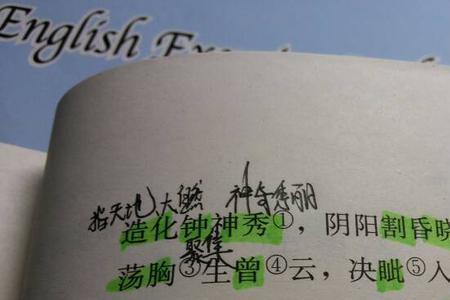 English Ex
指天地大自然 神奇秀丽
造化钟神秀①，阴阳割昏晓
聚集
荡胸③生曾④云，决眦⑤入